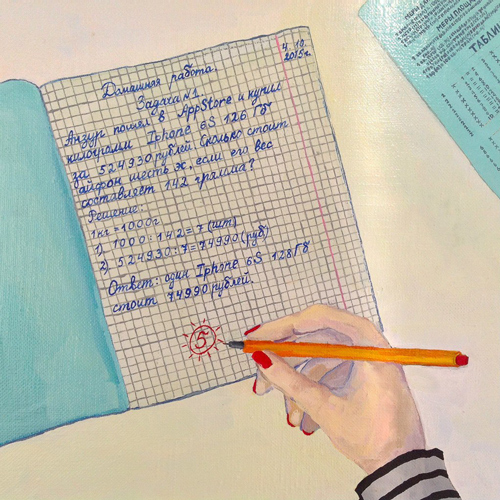 4.10.
2015г.
Домашняя работа.
Задача №1.
Анзур пошёл в AppStore и купил
килограмм Iphone 6S 126 Гб
за 524930 рублей. Сколько стоит
айфон шесть ж, если его вес
составляет 142 грамма?
Решение:
1кг = 1000г
1) 1000 : 142 = 7 (шт)
2) 524930 : 7 = 74990 (руб)
Ответ: один Iphone 6S 128Гб
стоит 74990 рублей.
5
МЕРЫ ПЛОЩА
ТАБЛИ